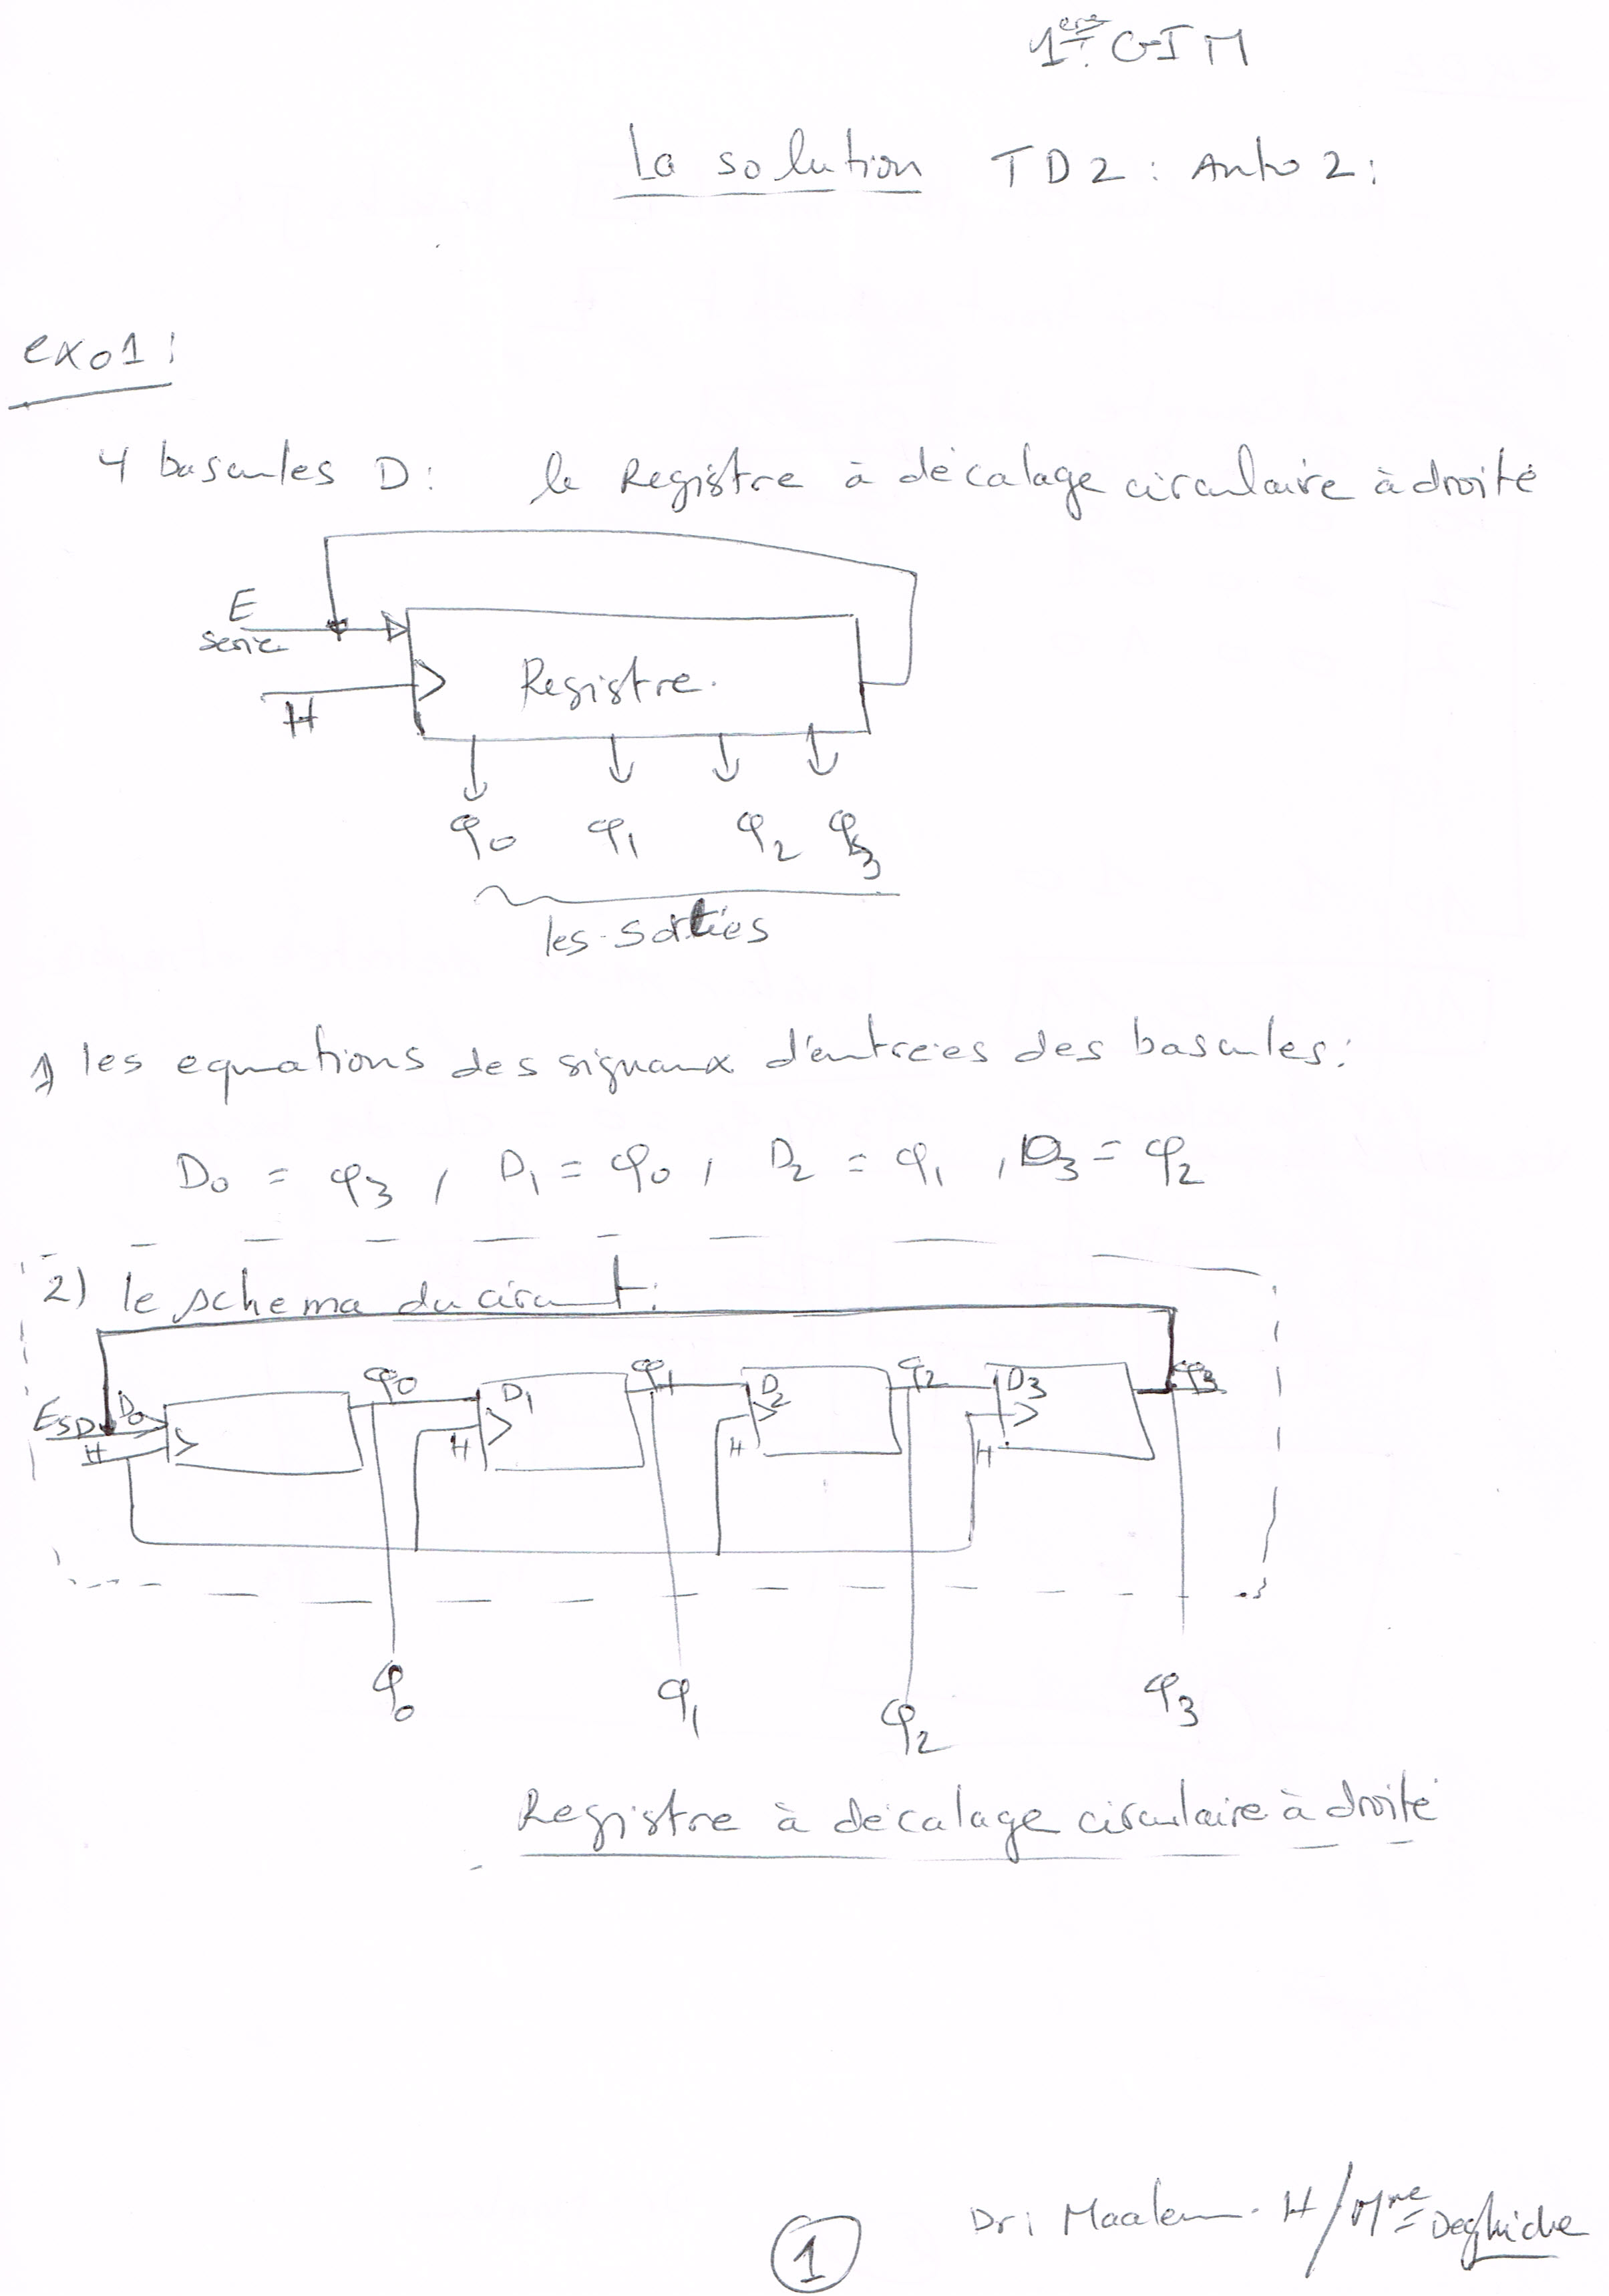 1ère GIM
La solution TD2: Auto 2:
exo1:
4 bascules D: le Registre à décalage circulaire à droite
E
serie
H
Registre.
φ0 φ1 φ2 φ3
les sorties
1) les equations des signaux d'entrées des bascules:
D0 = φ3, D1 = φ0, D2 = φ1, D3 = φ2
2) le schema du circuit:
φ0 φ1 φ2 φ3
ESD D0 D1 D2 D3
H H H H
φ0 φ1 φ2 φ3
Registre à décalage circulaire à droite
1
Dr: Maalem. H/Mme Deghiche